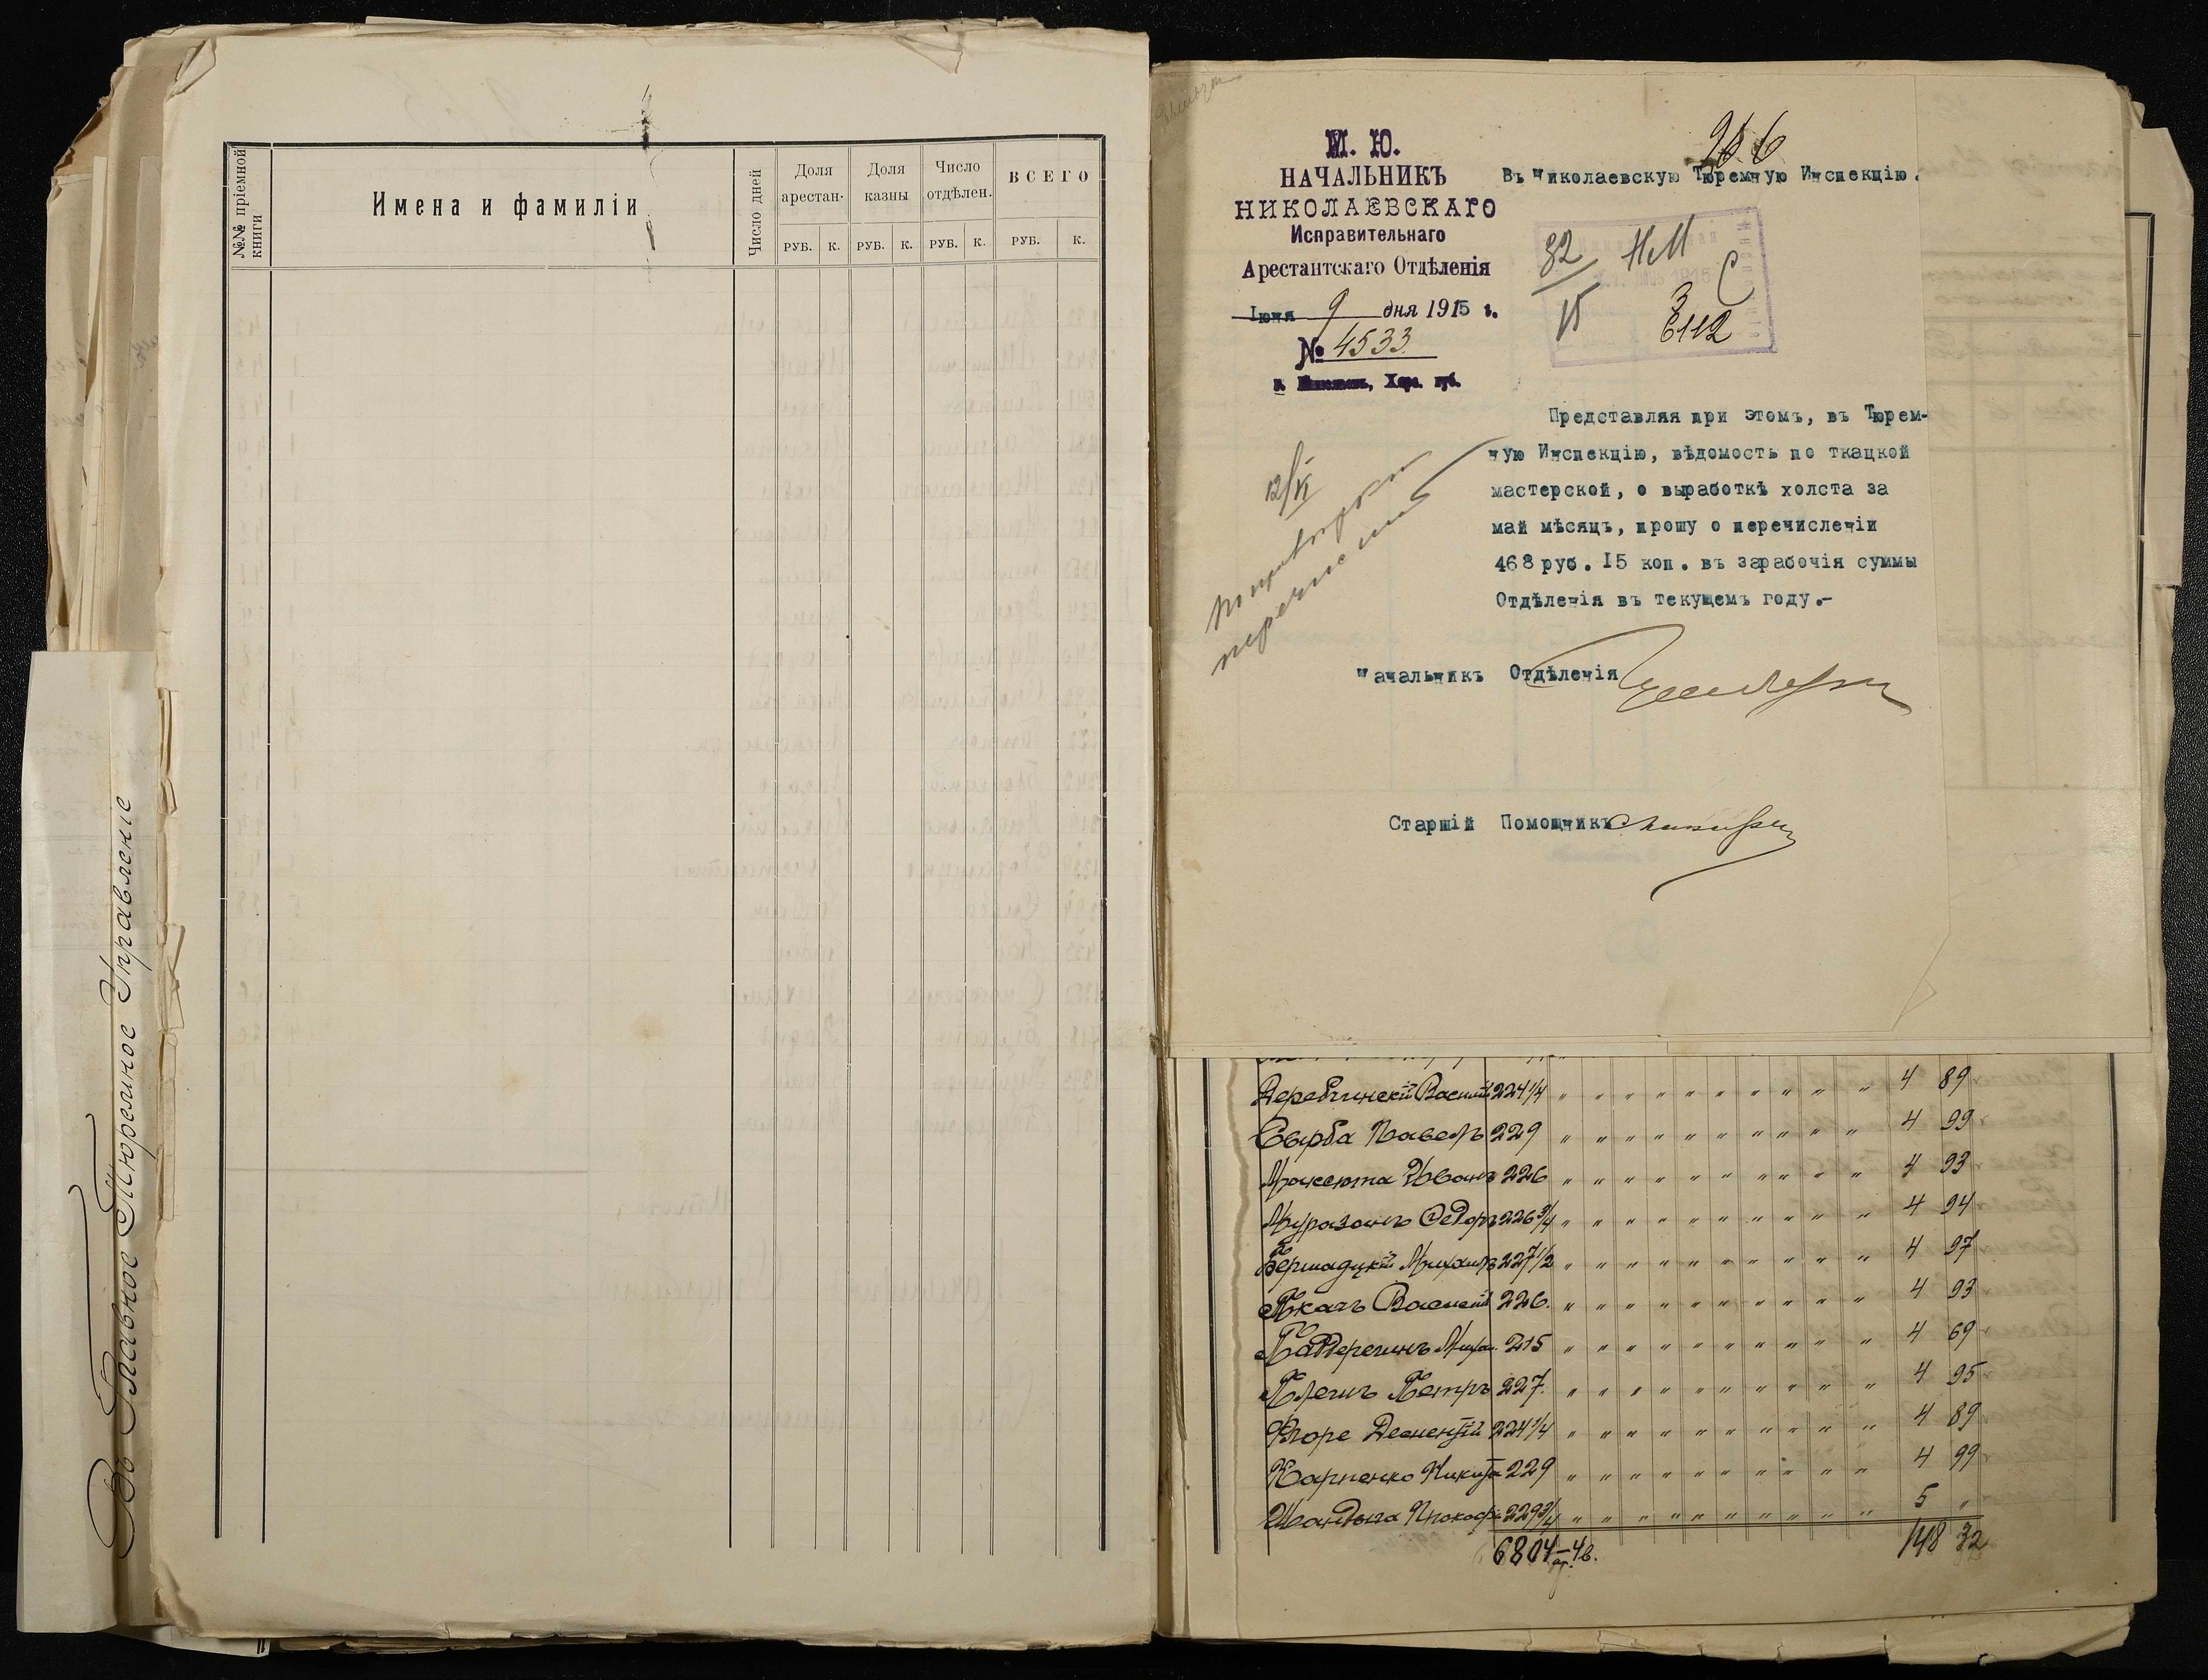 Въ Главное Тюремное Управленіе
№№ пріемной книги
Имена и фамиліи
Число дней
Доля арестан.
Доля казны
Число отдѣлен.
ВСЕГО
РУБ. К. РУБ. К. РУБ. К. РУБ. К.
М. Ю.
НАЧАЛЬНИКЪ
НИКОЛАЕВСКАГО
Исправительнаго
Арестантскаго Отдѣленія
Іюня 9 дня 1915 г.
№ 4533
г. Николаевъ, Херс. губ.
266
Въ Николаевскую Тюремную Инспекцію.
32
15
3
6112
Представляя при этомъ, въ Тюрем-
ную Инспекцію, вѣдомость по ткацкой
мастерской, о выработкѣ холста за
май мѣсяцъ, прошу о перечисленіи
468 руб. 15 коп. въ зарабочія суммы
Отдѣленія въ текущемъ году.-
12/VI
По провѣркѣ
перечислить
Начальникъ Отдѣленія
Старшій Помощникъ
Деребчинскій Василій 224 1/4 " " " " " " " " " " 4 89
Сырба Павелъ 229 " " " " " " " " " " 4 99
Иванъ 226 " " " " " " " " " " 4 93
Федоръ 226 3/4 " " " " " " " " " " 4 94
Бершадцкій Михаилъ 227 1/2 " " " " " " " " " " 4 97
Ткачъ Василій 226. " " " " " " " " " " 4 93
215 " " " " " " " " " " 4 69
Петръ 227. " " " " " " " " " " 4 95
224 1/4 " " " " " " " " " " 4 89
Карпенко Никита 229 " " " " " " " " " " 4 99
Шандыга Прокоф. 229 3/4 " " " " " " " " " " 5 "
6804 ар. - 4 в. 148 32